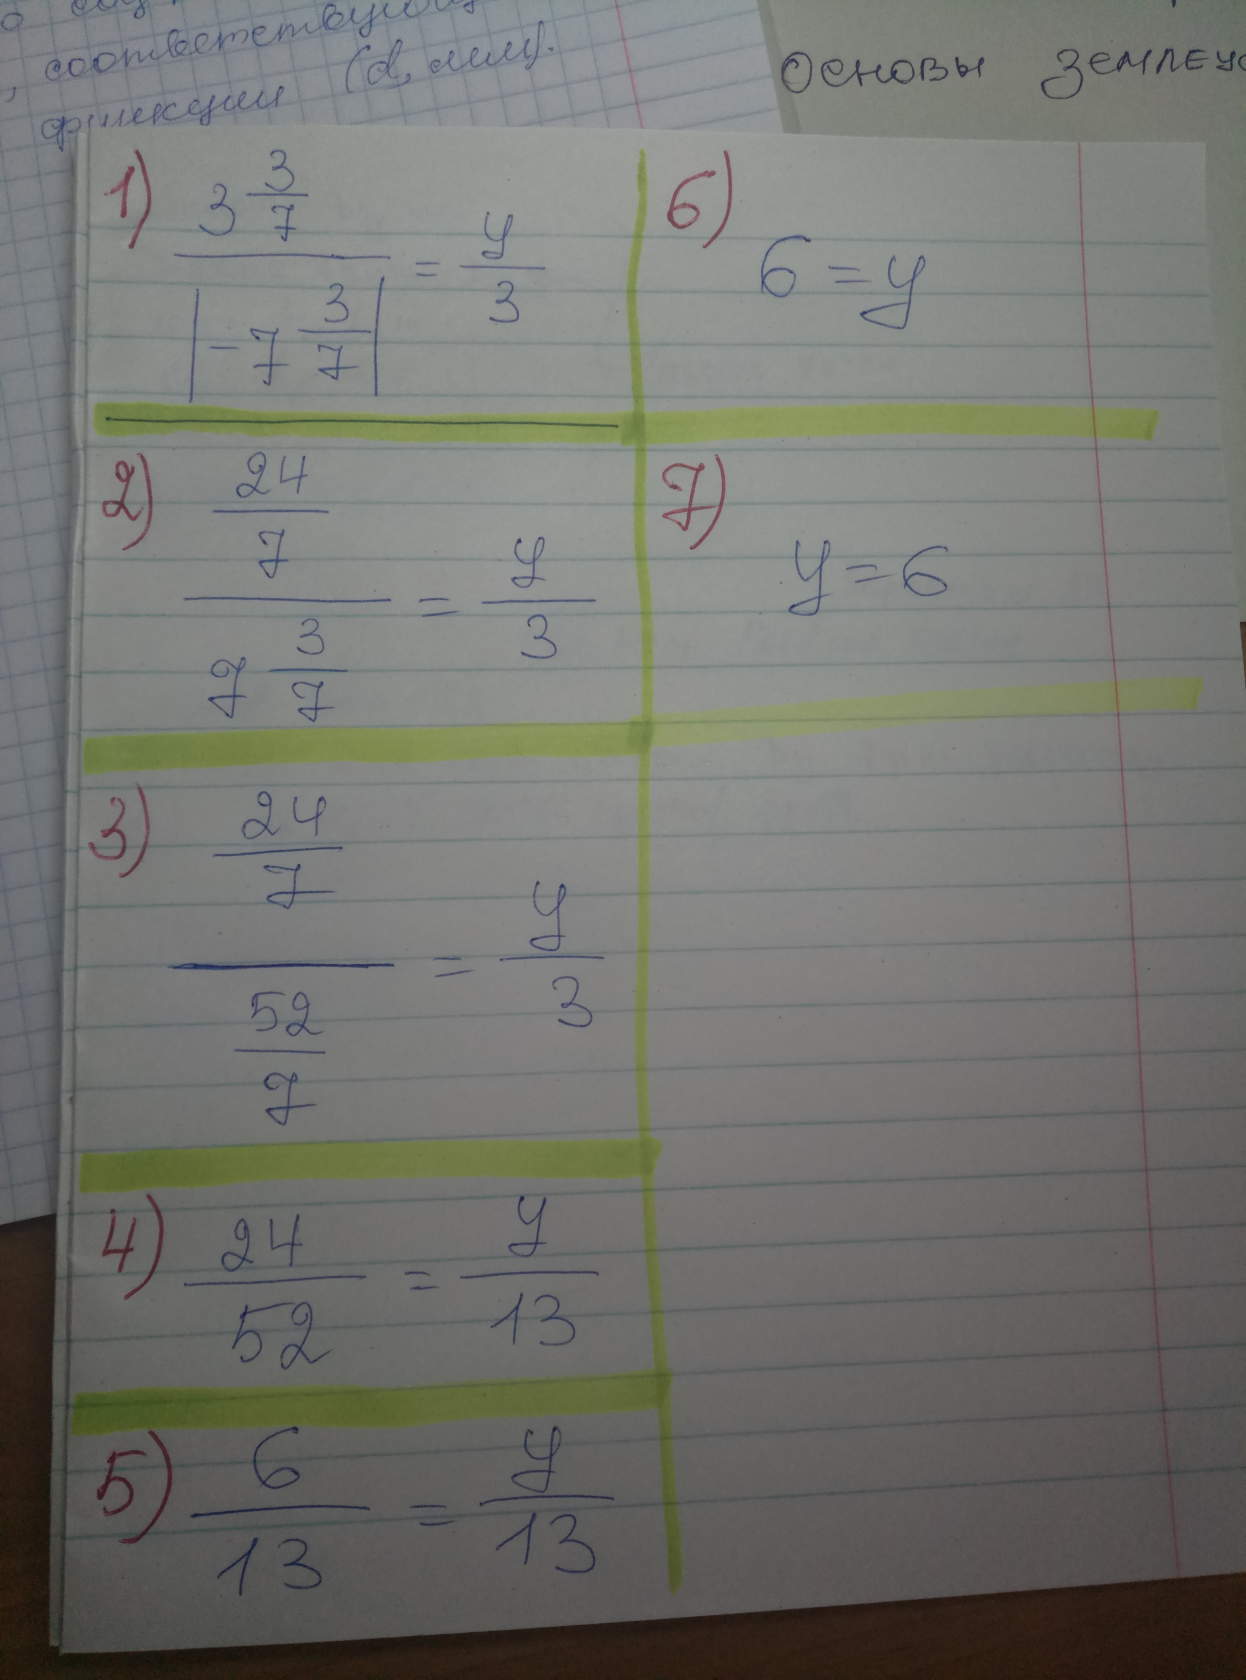 соответствующ
функции (d,
основы землеус
1) 3 3/7 / |-7 3/7| = y/3
2) 24/7 / 7 3/7 = y/3
3) 24/7 / 52/7 = y/3
4) 24/52 = y/13
5) 6/13 = y/13
6) 6 = y
7) y = 6